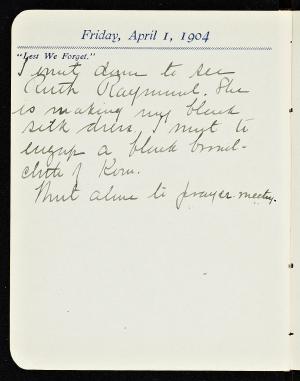 Friday, April 1, 1904
"Lest We Forget."
I went down to see
Ruth Raymond. She
is making my black
silk dress, I went to
engage a black broad-
cloth of Korn.
Went alone to prayer meeting.